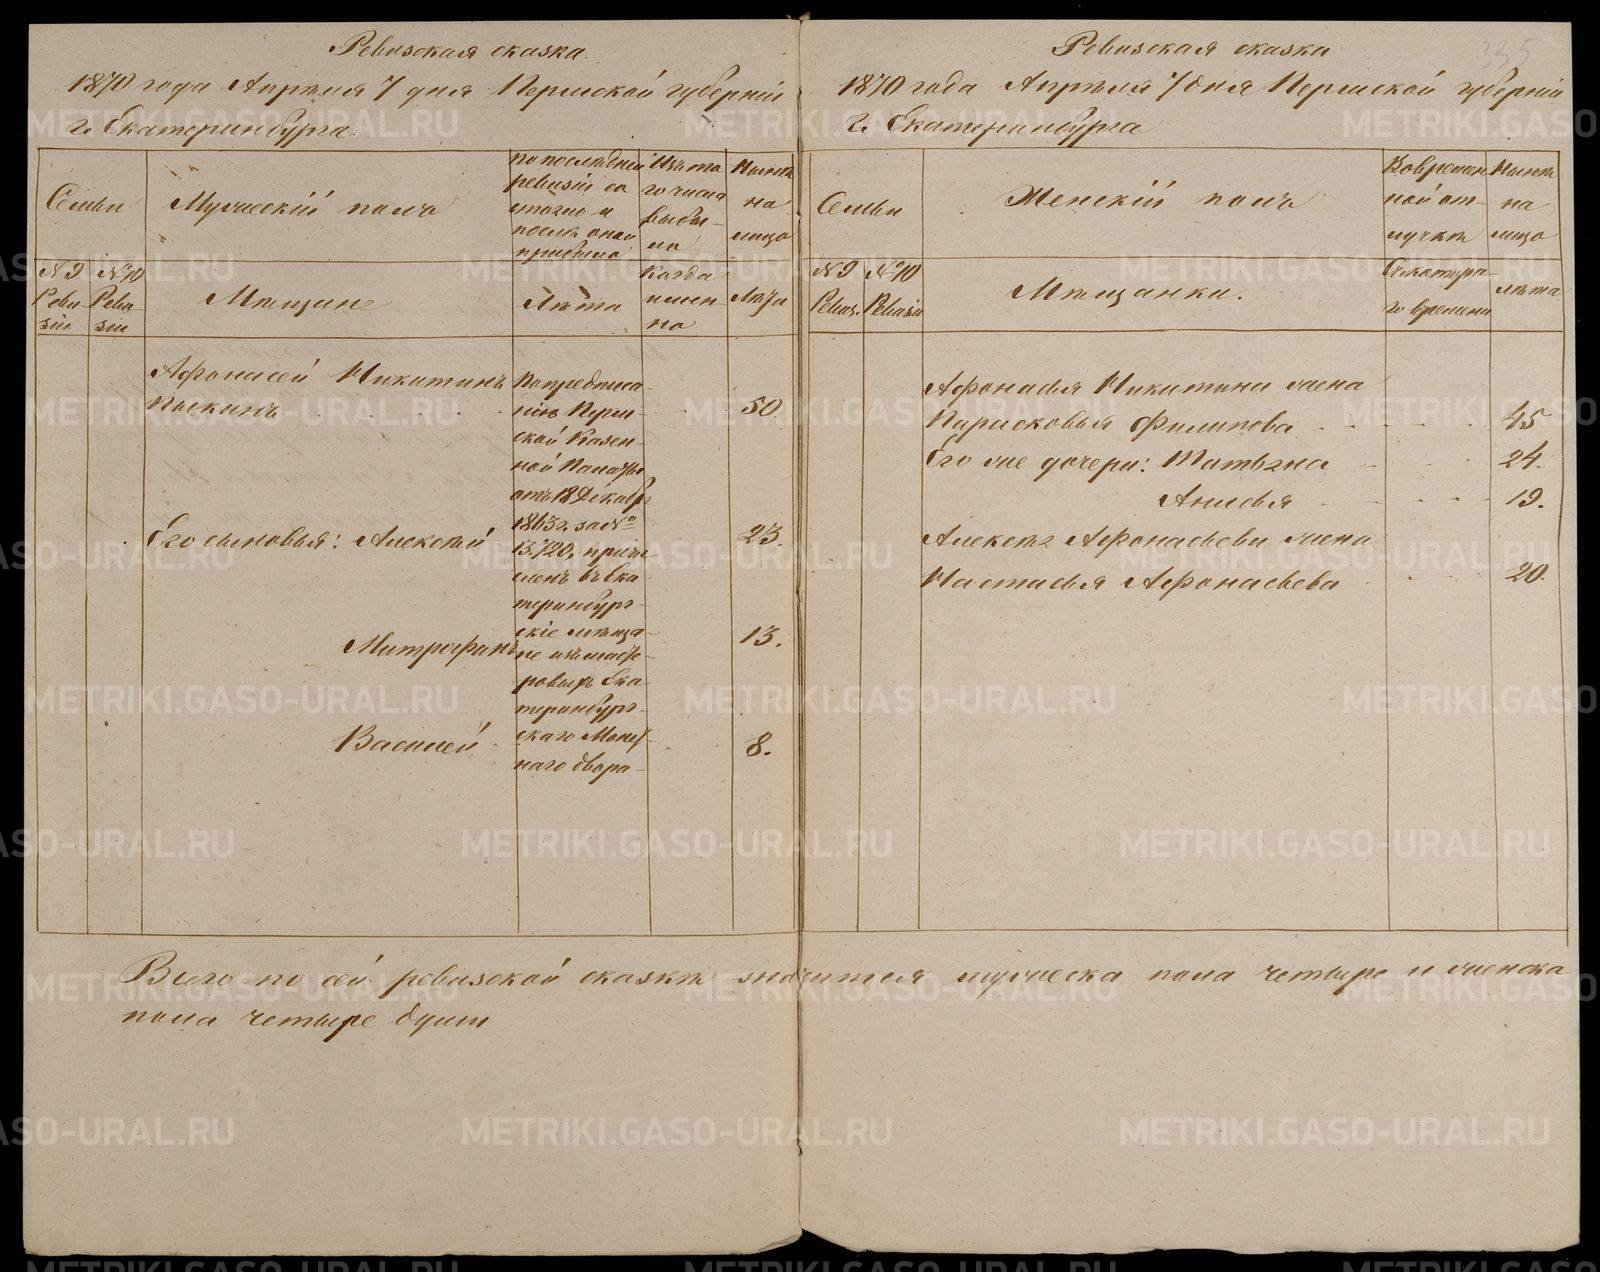 Ревизская сказка
1870 года Апрѣля 7 дня Пермской губерніи
г. Екатеринбурга
Семьи
Мужескій полъ
по послѣдней
ревизіи со
стояло и
послѣ оной
прибыло
Изъ то
го числа
выбы-
ло
Нынѣ
на
лицо
№ 9
Реви
зіи
№ 10
Реви
зіи
Мѣщане
Лѣта
Когда
имен
но
Лѣта
Афонасей Никитинъ
50.
По предписа-
нію Перм-
ской Казен-
ной Палаты
отъ 18 Декабр
1863 г. за №
13720, причи
сленъ въ Ека
теринбург-
скіе мѣща-
не изъ масте-
ровыхъ Ека
теринбург-
скаго Монет-
наго двора-
Его сыновья: Алексѣй 23.
Митрофанъ 13.
Василей 8.
Ревизская сказка
335
1870 года Апрѣля 7 дня Пермской губерніи
г. Екатеринбурга
Семьи
Женскій полъ
Во времен
ной от-
лучкѣ
Нынѣ
на
лицо
№ 9
Ревиз.
№ 10
Ревизіи
Мѣщанки.
Съ котора
го времени
лѣта
Афонасья Никитина жена
Парасковья Филипова 45
Его же дочери: Татьяна 24.
Анисья 19.
Алексѣя Афонасьева жена
Настасья Афонасьева 20.
Всего по сей ревизской сказкѣ значится мужеска пола четыре и женска
пола четыре души
METRIKI.GASO-URAL.RU